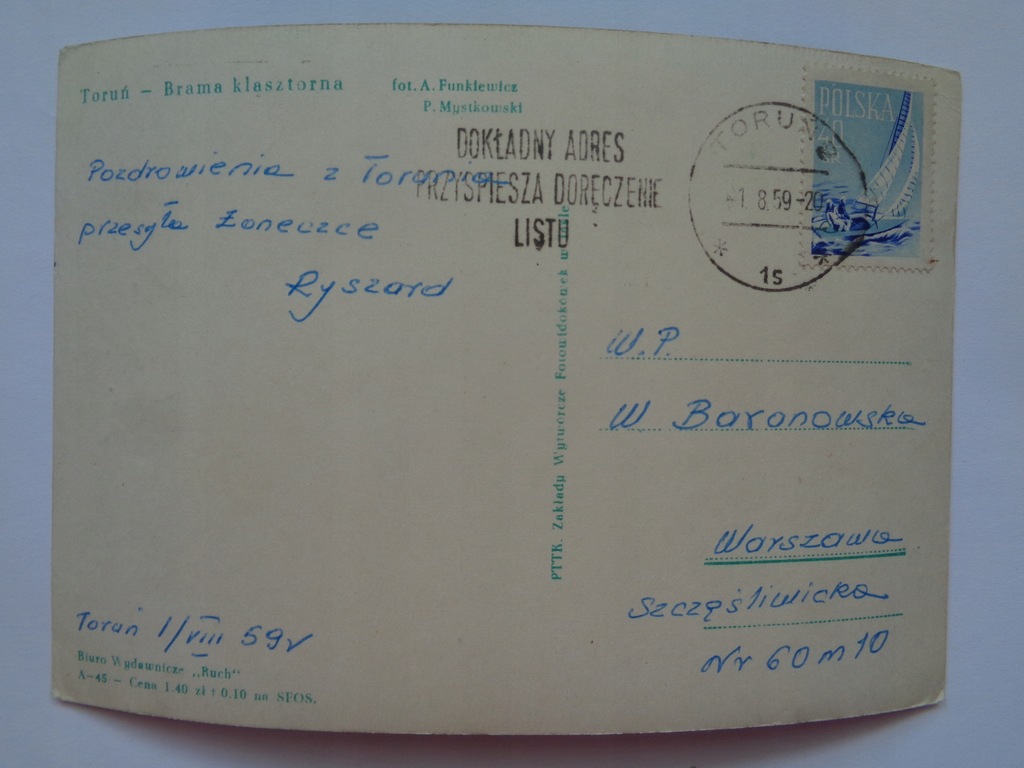 Toruń – Brama klasztorna
fot. A. Funkiewicz
P. Mystkowski
DOKŁADNY ADRES
PRZYŚPIESZA DORĘCZENIE
LISTU
TORUŃ
1.8.59-20
1s
POLSKA
40
GR
Pozdrowienia z Torunia
przesyła Żoneczce
Ryszard
PTTK. Zakłady Wytwórcze Fotowidokówek w
W.P.
W Baranowska
Warszawa
Szczęśliwicka
Nr 60 m 10
Toruń 1/VIII 59r
Biuro Wydawnicze „Ruch”
A-45 – Cena 1.40 zł + 0.10 na SFOS.